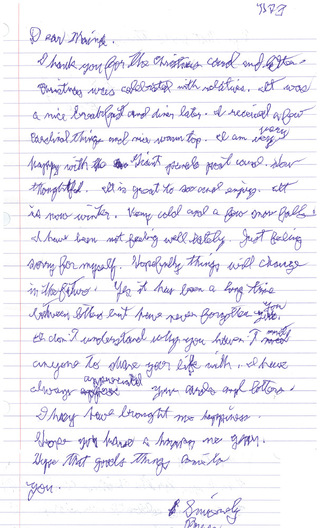 Dear
Thank you for the Christmas card and letter.
Christmas was celebrated with relatives. It was
a nice breakfast and diner later. I received a few
cardinal things and nice warm top. I am very
happy with the post card. How
thoughtful. It is great to see and enjoy. It
is now winter. Very cold and a few snow falls.
I have been not feeling well lately. Just feeling
sorry for myself. Hopefully things will change
in the future. Yes it has been a long time
between letters but have never forgotten you
or don't understand why you haven't
anyone to share your life with. I have
always appreciated your cards and letters.
They have brought me happiness.
I hope you have a happy new year.
Hope that goods things come to
you.
Sincerely